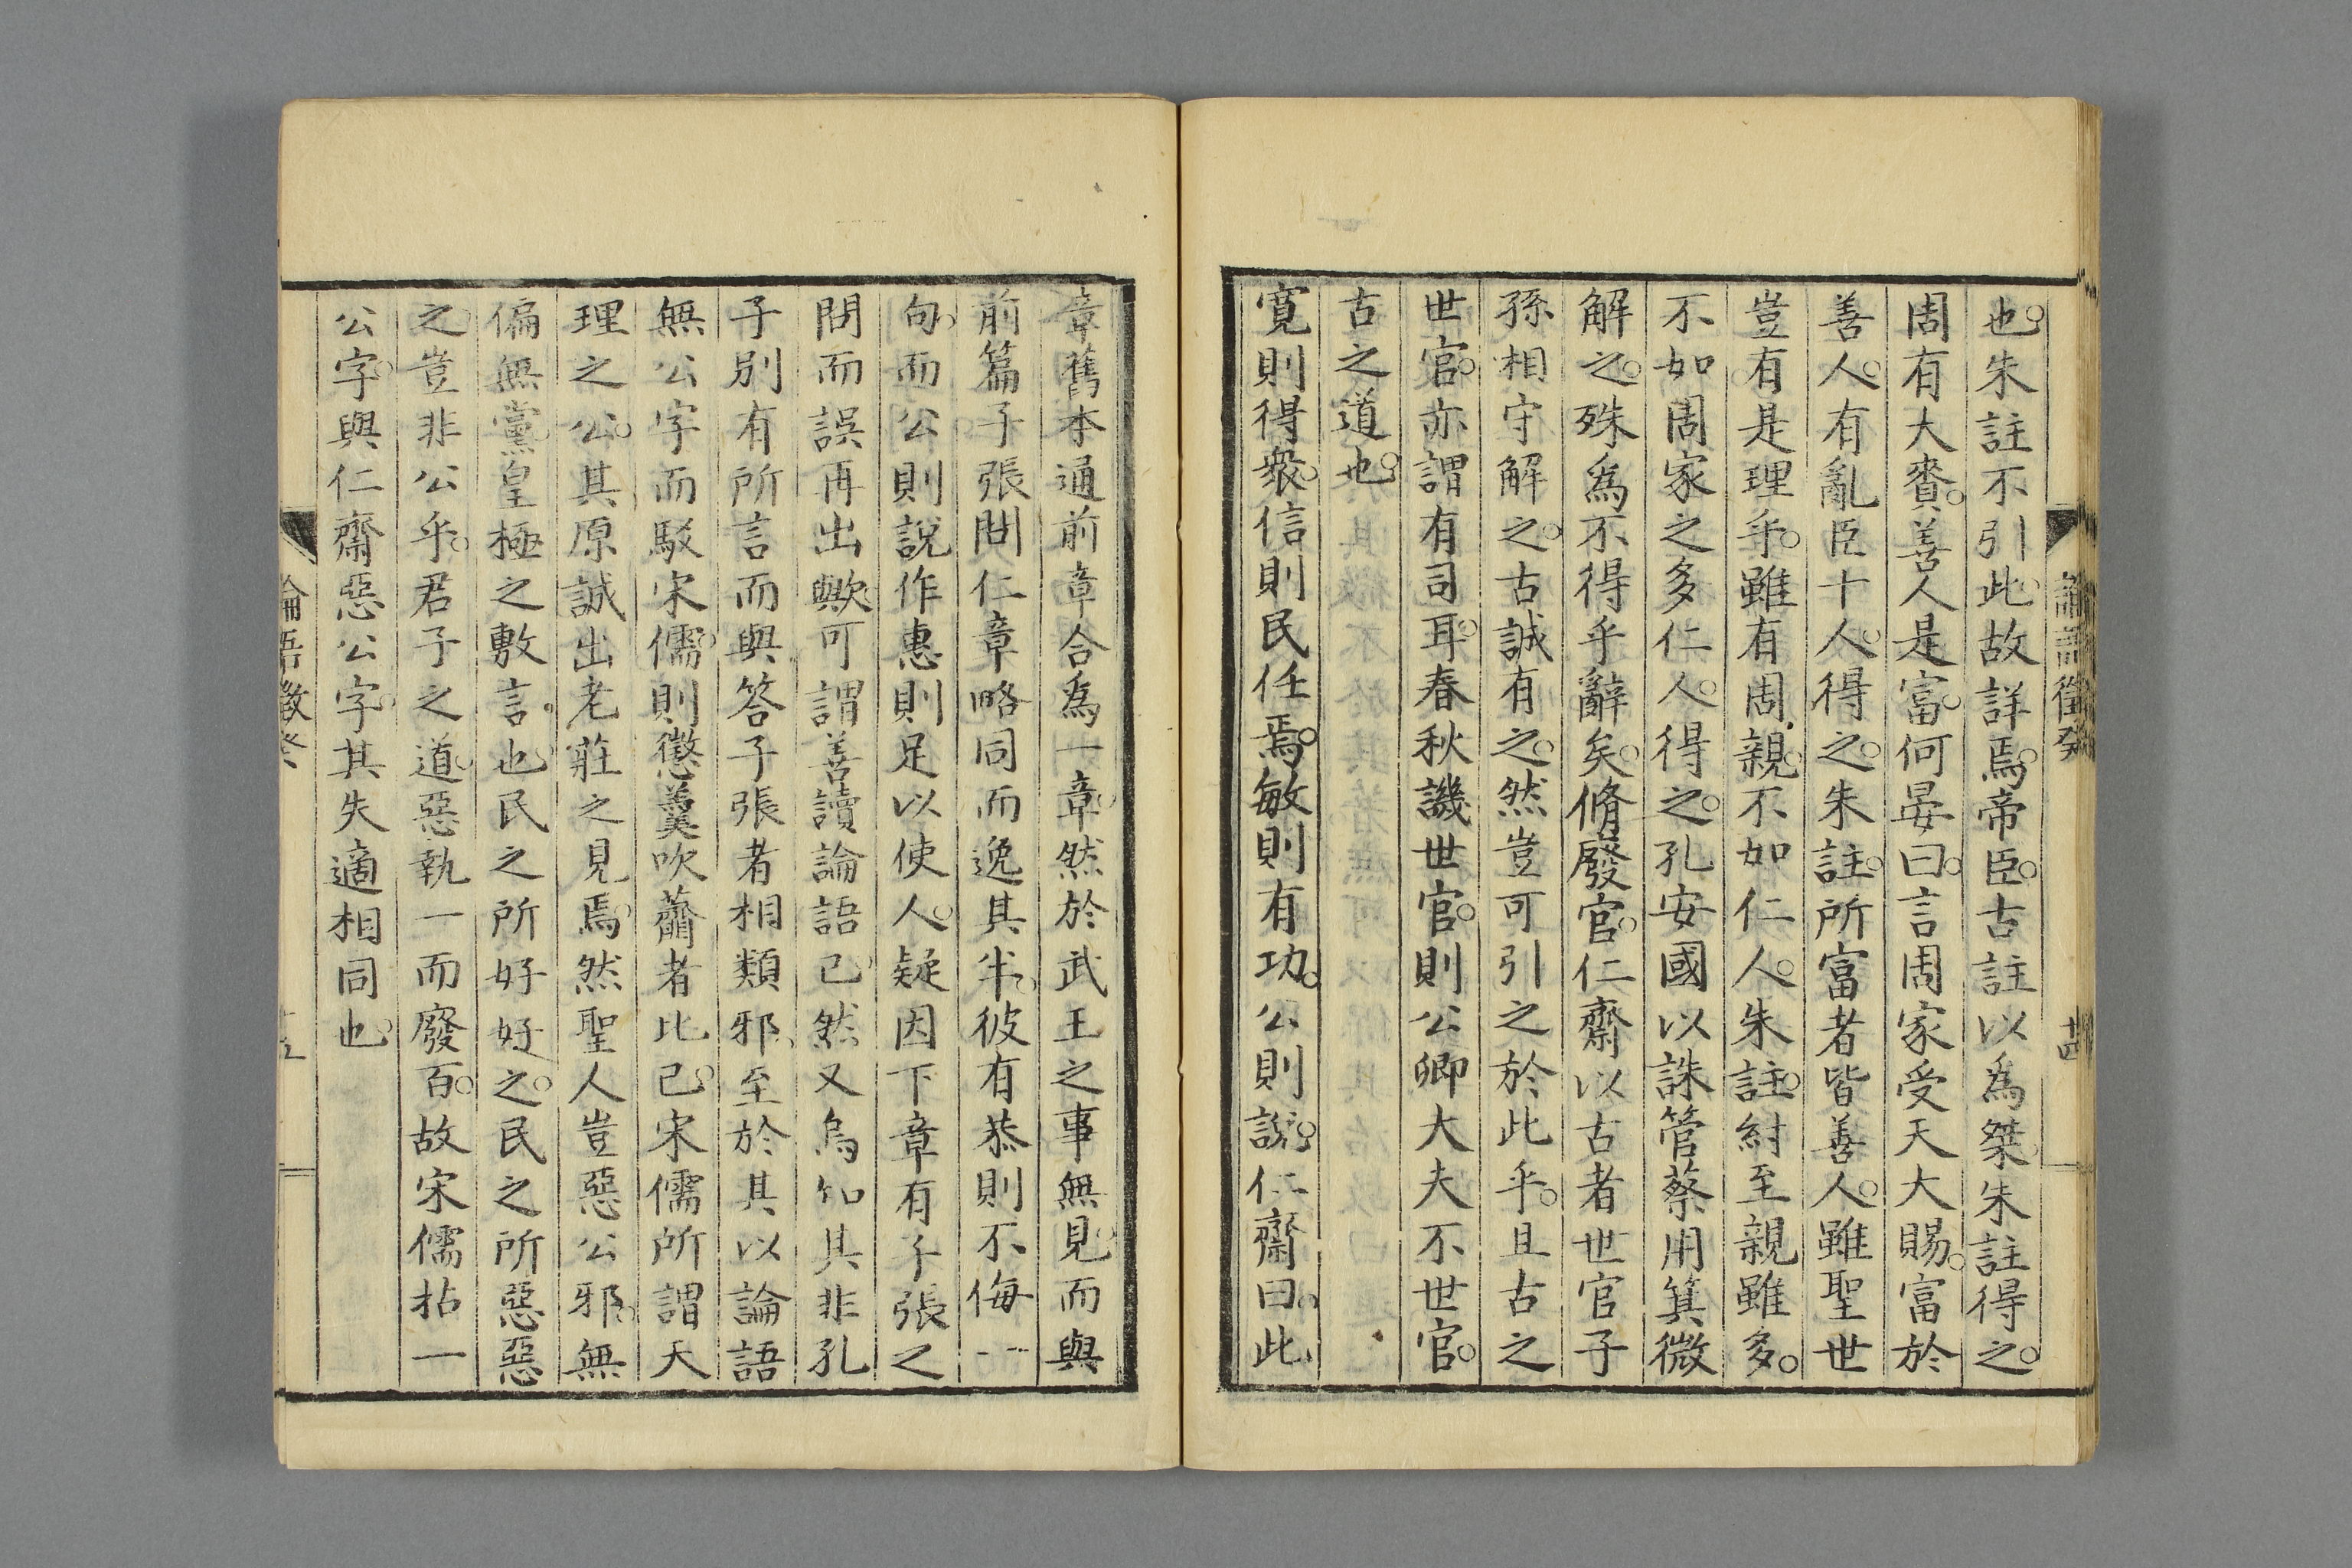 論語徵癸
十四
也。朱註不引此。故詳焉。帝臣。古註以爲桀。朱註得之。
周有大賚。善人是富。何晏曰。言周家受天大賜。富於
善人。有亂臣十人。得之。朱註。所富者皆善人。雖聖世
豈有是理乎。雖有周親。不如仁人。朱註。紂至親雖多。
不如周家之多仁人。得之。孔安國以誅管蔡用箕微
解之。殊爲不得乎辭矣。脩廢官。仁齋以古者世官子
孫相守解之。古誠有之。然豈可引之於此乎。且古之
世官。亦謂有司耳。春秋譏世官。則公卿大夫不世官。
古之道也。
寬則得衆。信則民任焉。敏則有功。公則說。仁齋曰。此
章舊本通前章合爲一章。然於武王之事無見。而與
前篇子張問仁章略同。而逸其半。彼有恭則不侮一
句。而公則說作惠則足以使人。疑因下章有子張之
問而誤再出歟。可謂善讀論語已。然又烏知其非孔
子別有所言而與答子張者相類邪。至於其以論語
無公字而駁宋儒。則懲羹吹虀者比已。宋儒所謂天
理之公。其原誠出老莊之見焉。然聖人豈惡公邪。無
偏無黨。皇極之敷言也。民之所好好之。民之所惡惡
之。豈非公乎。君子之道。惡執一而廢百。故宋儒拈一
公字。與仁齋惡公字。其失適相同也。
論語徵癸